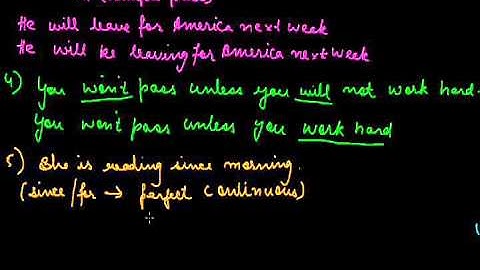 He will leave for America next week
He will be leaving for America next week
4) You won't pass unless you will not work hard.
You won't pass unless you work hard
5) She is reading since morning.
(since/for → perfect continuous)